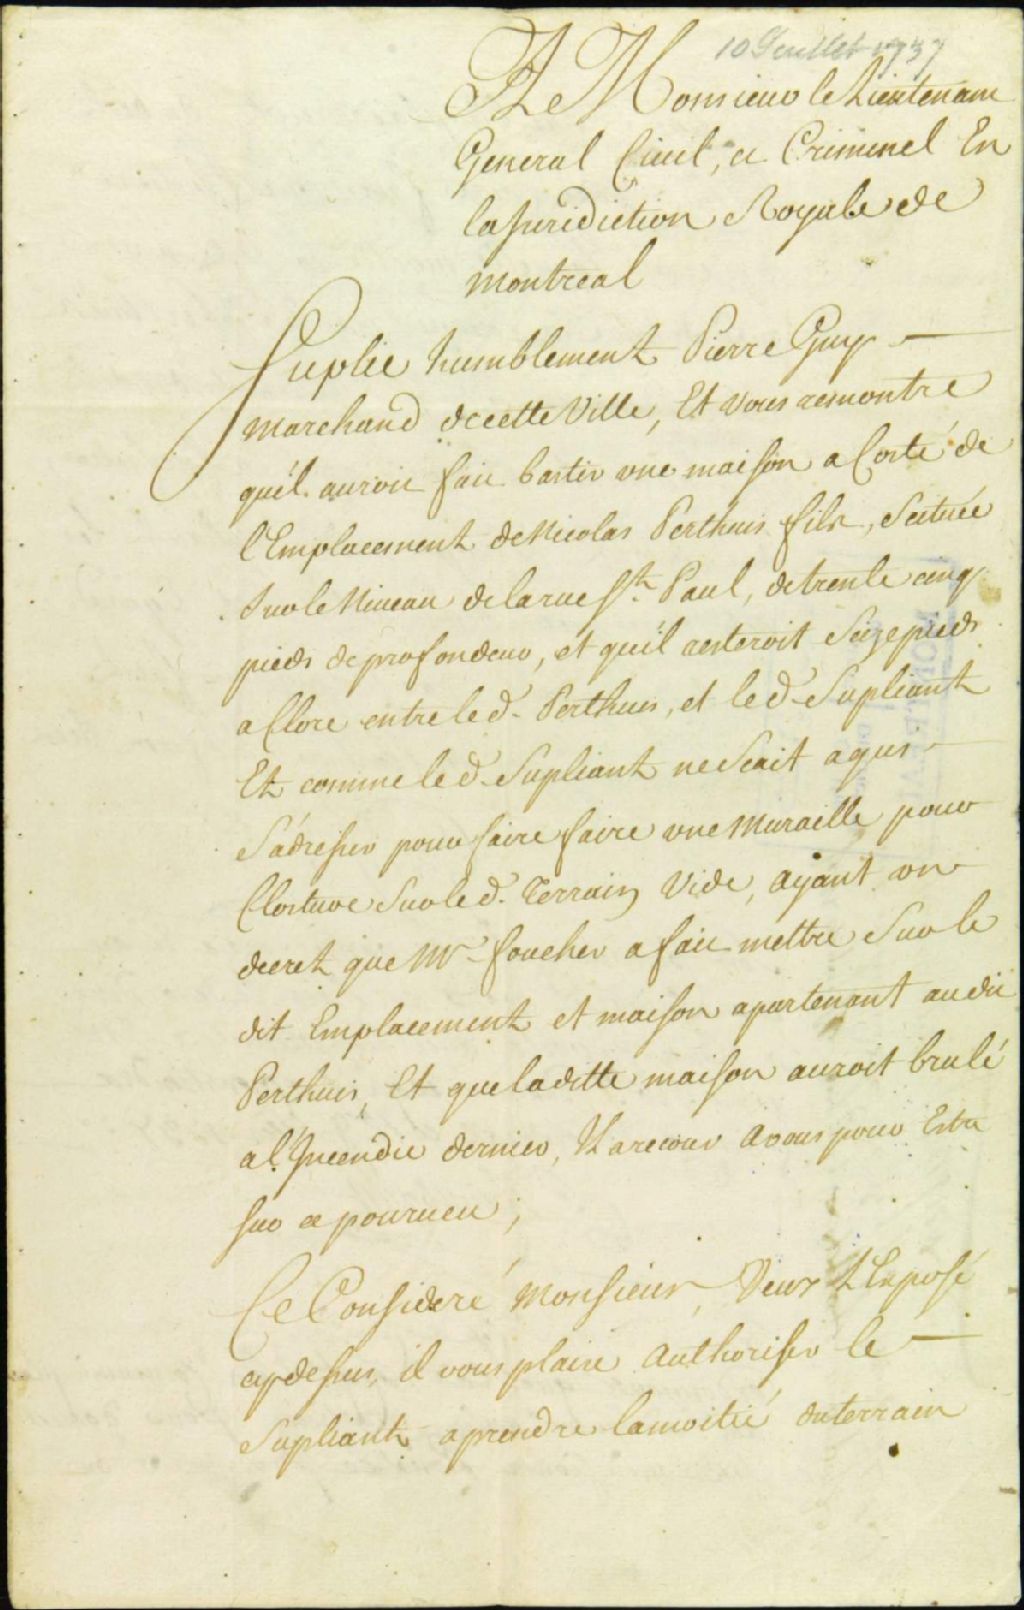 10 Juillet 1737
A Monsieur le Lieutenant
General Civil, et Criminel En
la Juridiction Royale de
Montreal
Suplie humblement Pierre Guy
Marchand de cette Ville, Et vous remontre
qu'il auroit fait bastir une maison a Costé de
l'Emplacement de Nicolas Perthuis fils, Scituée
Sur le Niveau de la rue St. Paul, de trente cinq
pieds de profondeur, et qu'il resteroit Seize pieds
a Clore entre led. Perthuis, et led. Supliant
Et comme led. Supliant ne Scait a qui
S'adresser pour faire faire une Muraille pour
Closture Sur led. Terrain Vide, ayant un
decret que Mr. foucher a fait mettre Sur le
dit Emplacement et maison apartenant audit
Perthuis, Et que laditte maison auroit brulé
a l'Incendie dernier, Il a recour a vous pour Estre
sur ce pourveu;
Ce Consideré Monsieur, Veu L'Exposé
cy dessus, il vous plaise Authoriser le
Supliant a prendre la moitié du terrain